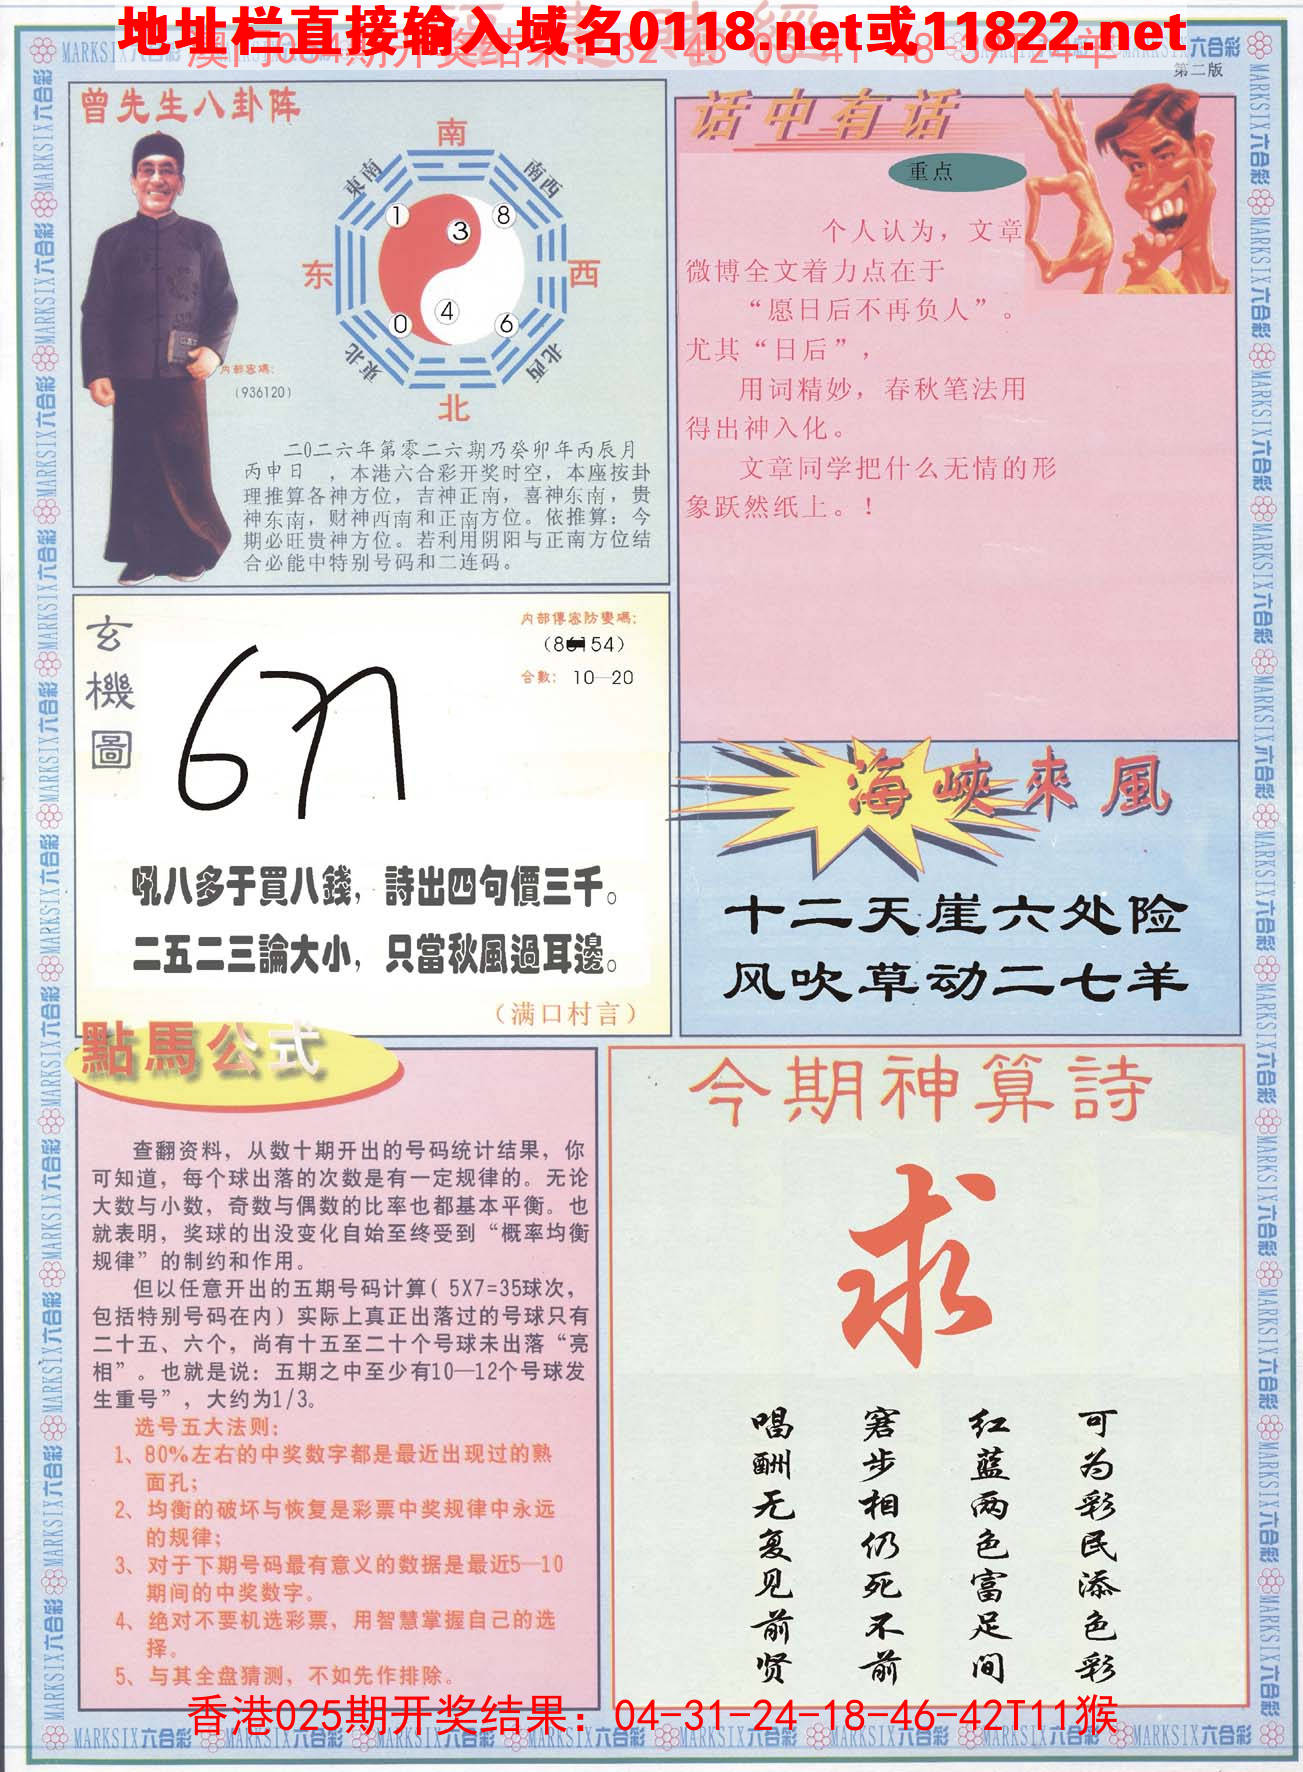 地址栏直接输入域名0118.net或11822.net
第二版
曾先生八卦阵
南
東南
南西
1
3
8
东
西
4
0
6
東北
北西
北
内部密碼:
(936120)
二0二六年第零二六期乃癸卯年丙辰月
丙申日 ，本港六合彩开奖时空，本座按卦
理推算各神方位，吉神正南，喜神东南，贵
神东南，财神西南和正南方位。依推算：今
期必旺贵神方位。若利用阴阳与正南方位结
合必能中特别号码和二连码。
话中有话
重点
个人认为，文章
微博全文着力点在于
“愿日后不再负人”。
尤其“日后”，
用词精妙，春秋笔法用
得出神入化。
文章同学把什么无情的形
象跃然纸上。！
玄機圖
内部傳密防變碼:
合數: 10—20
吼八多于買八錢，詩出四句價三千。
二五二三論大小，只當秋風過耳邊。
（满口村言）
海峽來風
十二天崖六处险
风吹草动二七羊
點馬公式
查翻资料，从数十期开出的号码统计结果，你
可知道，每个球出落的次数是有一定规律的。无论
大数与小数，奇数与偶数的比率也都基本平衡。也
就表明，奖球的出没变化自始至终受到“概率均衡
规律”的制约和作用。
但以任意开出的五期号码计算( 5X7=35球次，
包括特别号码在内）实际上真正出落过的号球只有
二十五、六个，尚有十五至二十个号球未出落“亮
相”。也就是说：五期之中至少有10—12个号球发
生重号”，大约为1/3。
选号五大法则:
1、80%左右的中奖数字都是最近出现过的熟
面孔;
2、均衡的破坏与恢复是彩票中奖规律中永远
的规律;
3、对于下期号码最有意义的数据是最近5—10
期间的中奖数字。
4、绝对不要机选彩票，用智慧掌握自己的选
择。
5、与其全盘猜测，不如先作排除。
今期神算詩
求
可为彩民添色彩
红蓝两色富足间
窘步相仍死不前
唱酬无复见前贤
香港025期开奖结果：04-31-24-18-46-42T11猴
MARKSIX六合彩